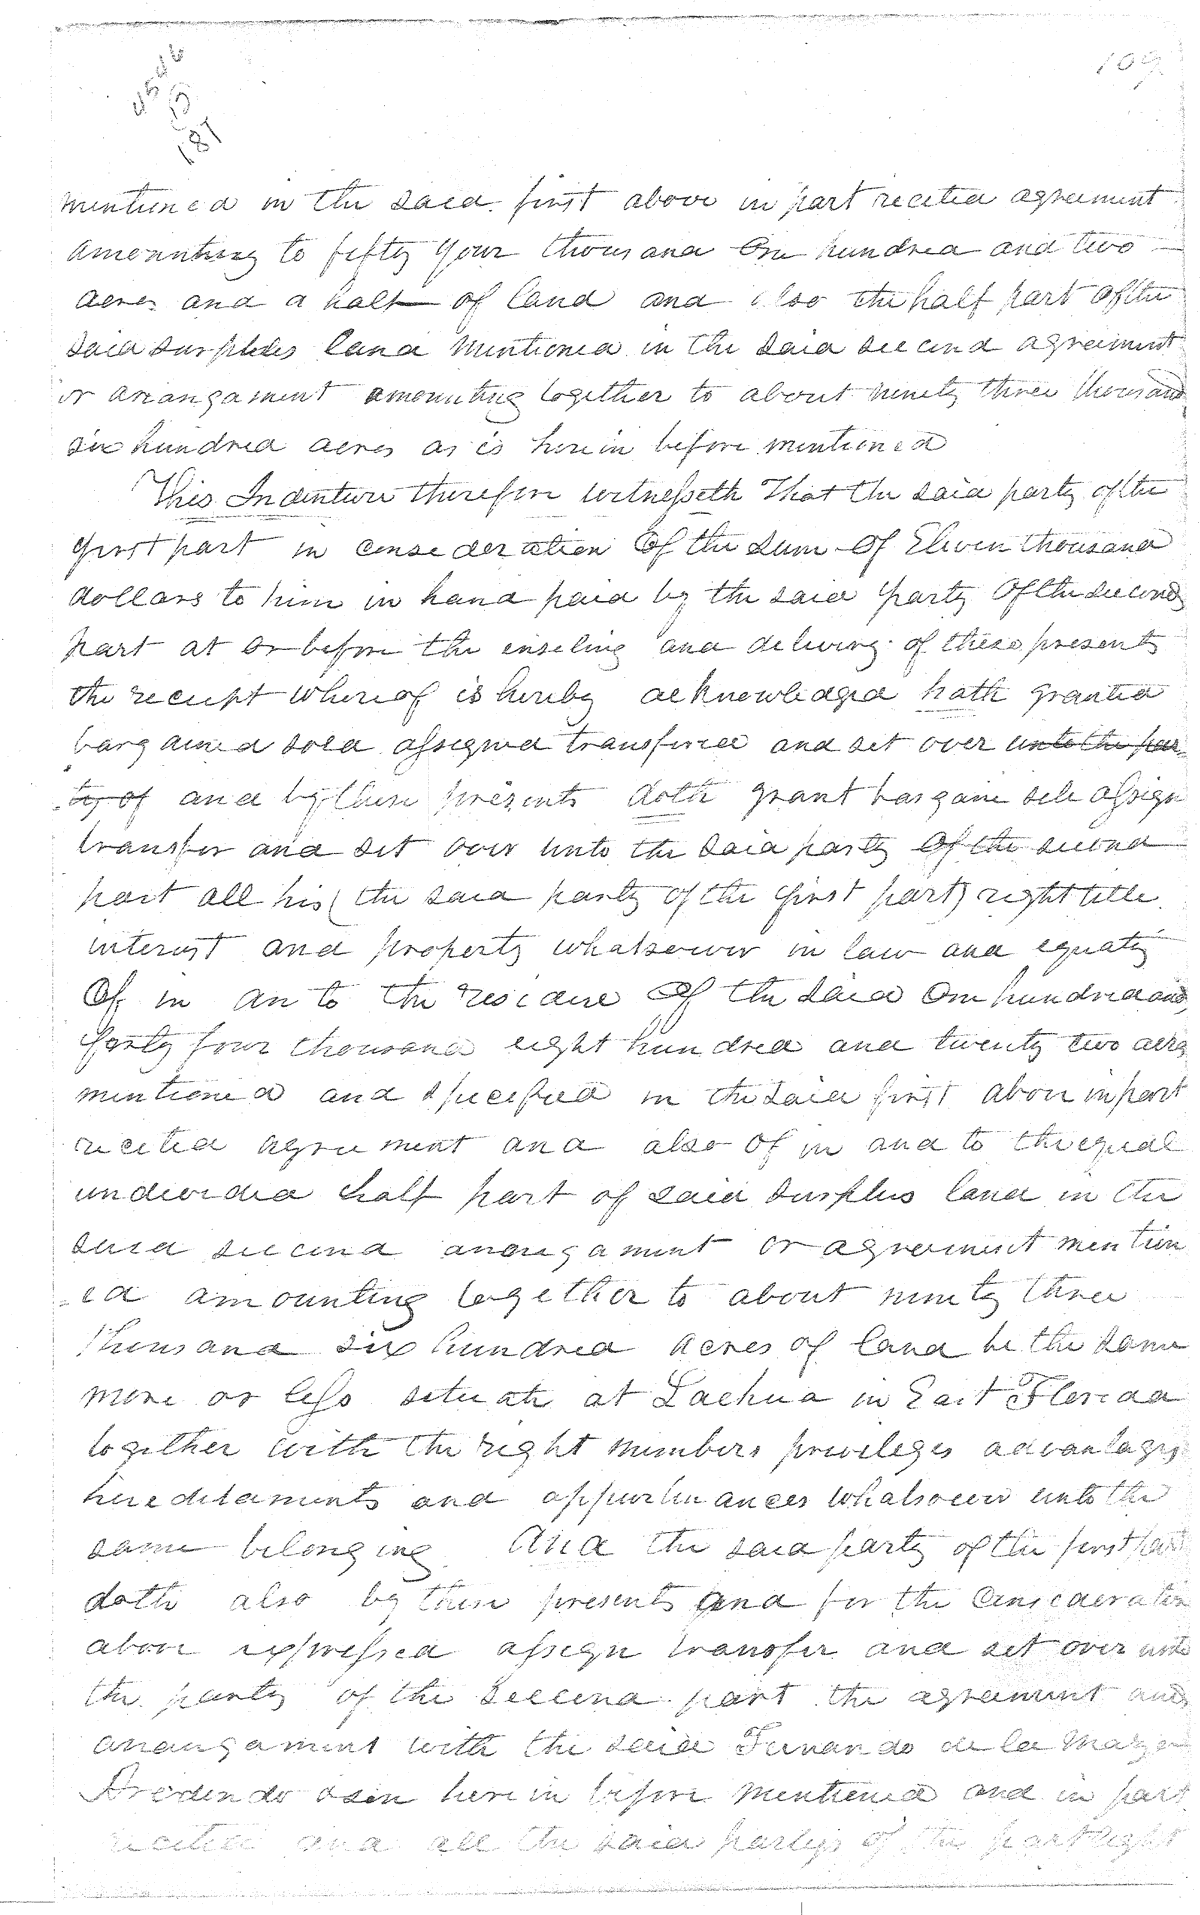 109
181
mentioned in the said first above in part recited agreement
amounting to fifty four thousand One hundred and two
acres and a half of land and also the half part of the
said surplus land mentioned in the said second agreement
or arrangament amounting together to about ninety three thousand
six hundred acres as is herein before mentioned
This Indenture therefore witnesseth That the said party of the
first part in consideration Of the sum Of Eleven thousand
dollars to him in hand paid by the said party Of the second
part at or before the ensealing and delivery of these presents
the receipt whereof is hereby acknowledged hath granted
bargained sold assigned transfered and set over unto the par
ty of and by these presents doth grant bargain sell assign
transfer and set over unto the said party Of the second
part all his (the said party of the first part) right title
interest and property whatsoever in law and equity
Of in an to the residue Of the said One hundred and
forty four thousand eight hundred and twenty two acres
mentioned and specified in the said first above in part
recited agreement and also Of in and to the equal
undivided half part of said surplus land in the
said second arrangament or agreement mention
ed amounting together to about ninety three
thousand six hundred acres of land be the same
more or less situate at Lachua in East Florida
together with the right members privileges advantages
hereditaments and appurtenances whatsoever unto the
same belonging And the said party of the first part
doth also by these presents and for the consideration
above expressed assign transfer and set over unto
the party of the second part the agreement and
arrangament with the said Fernando de la Maza
Arredendo herein before mentioned and in part
recited and all the said partys of the part right